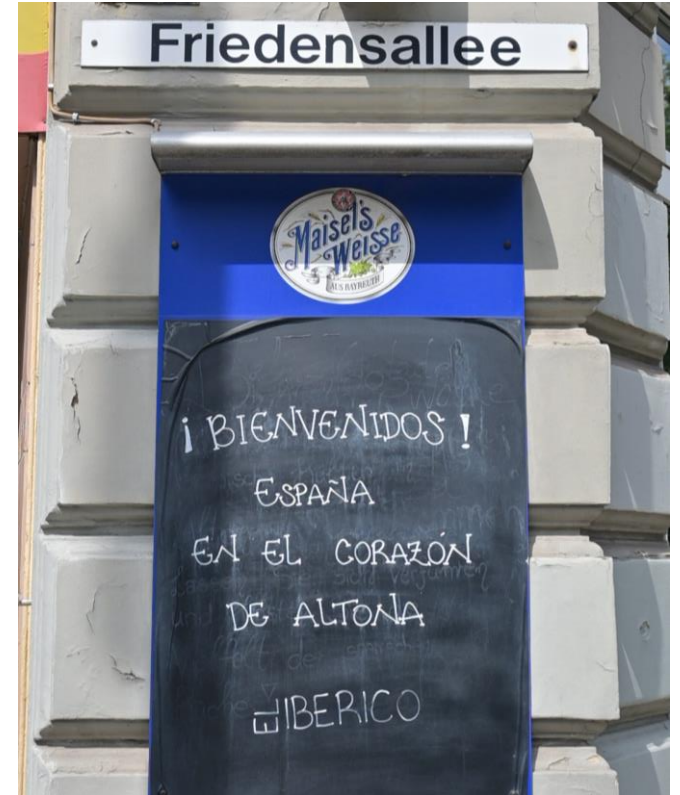 Friedensallee
Maisel's
Weisse
AUS BAYREUTH
¡BIENVENIDOS!
ESPAÑA
EN EL CORAZÓN
DE ALTONA
EL IBERICO